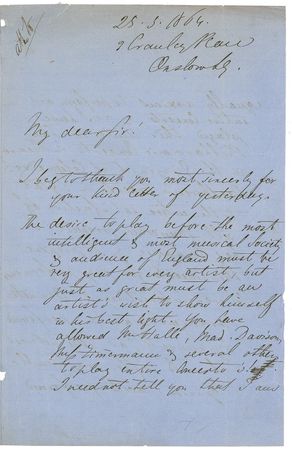 25. 5. 1864.
9 Cranley Place
Onslow Sq.
My dear Sir!
I beg to thank you most sincerely for
your kind letter of yesterday.
The desire to play before the most
intelligent & most musical Society
& audience of England must be
very great for every artist, but
just as great must be an
artist's wish to show himself
in his best light. You have
allowed Mr Hallé, Mad. Davison,
Miss Zimmermann & several others
to play entire Concertos
I need not tell you that I am